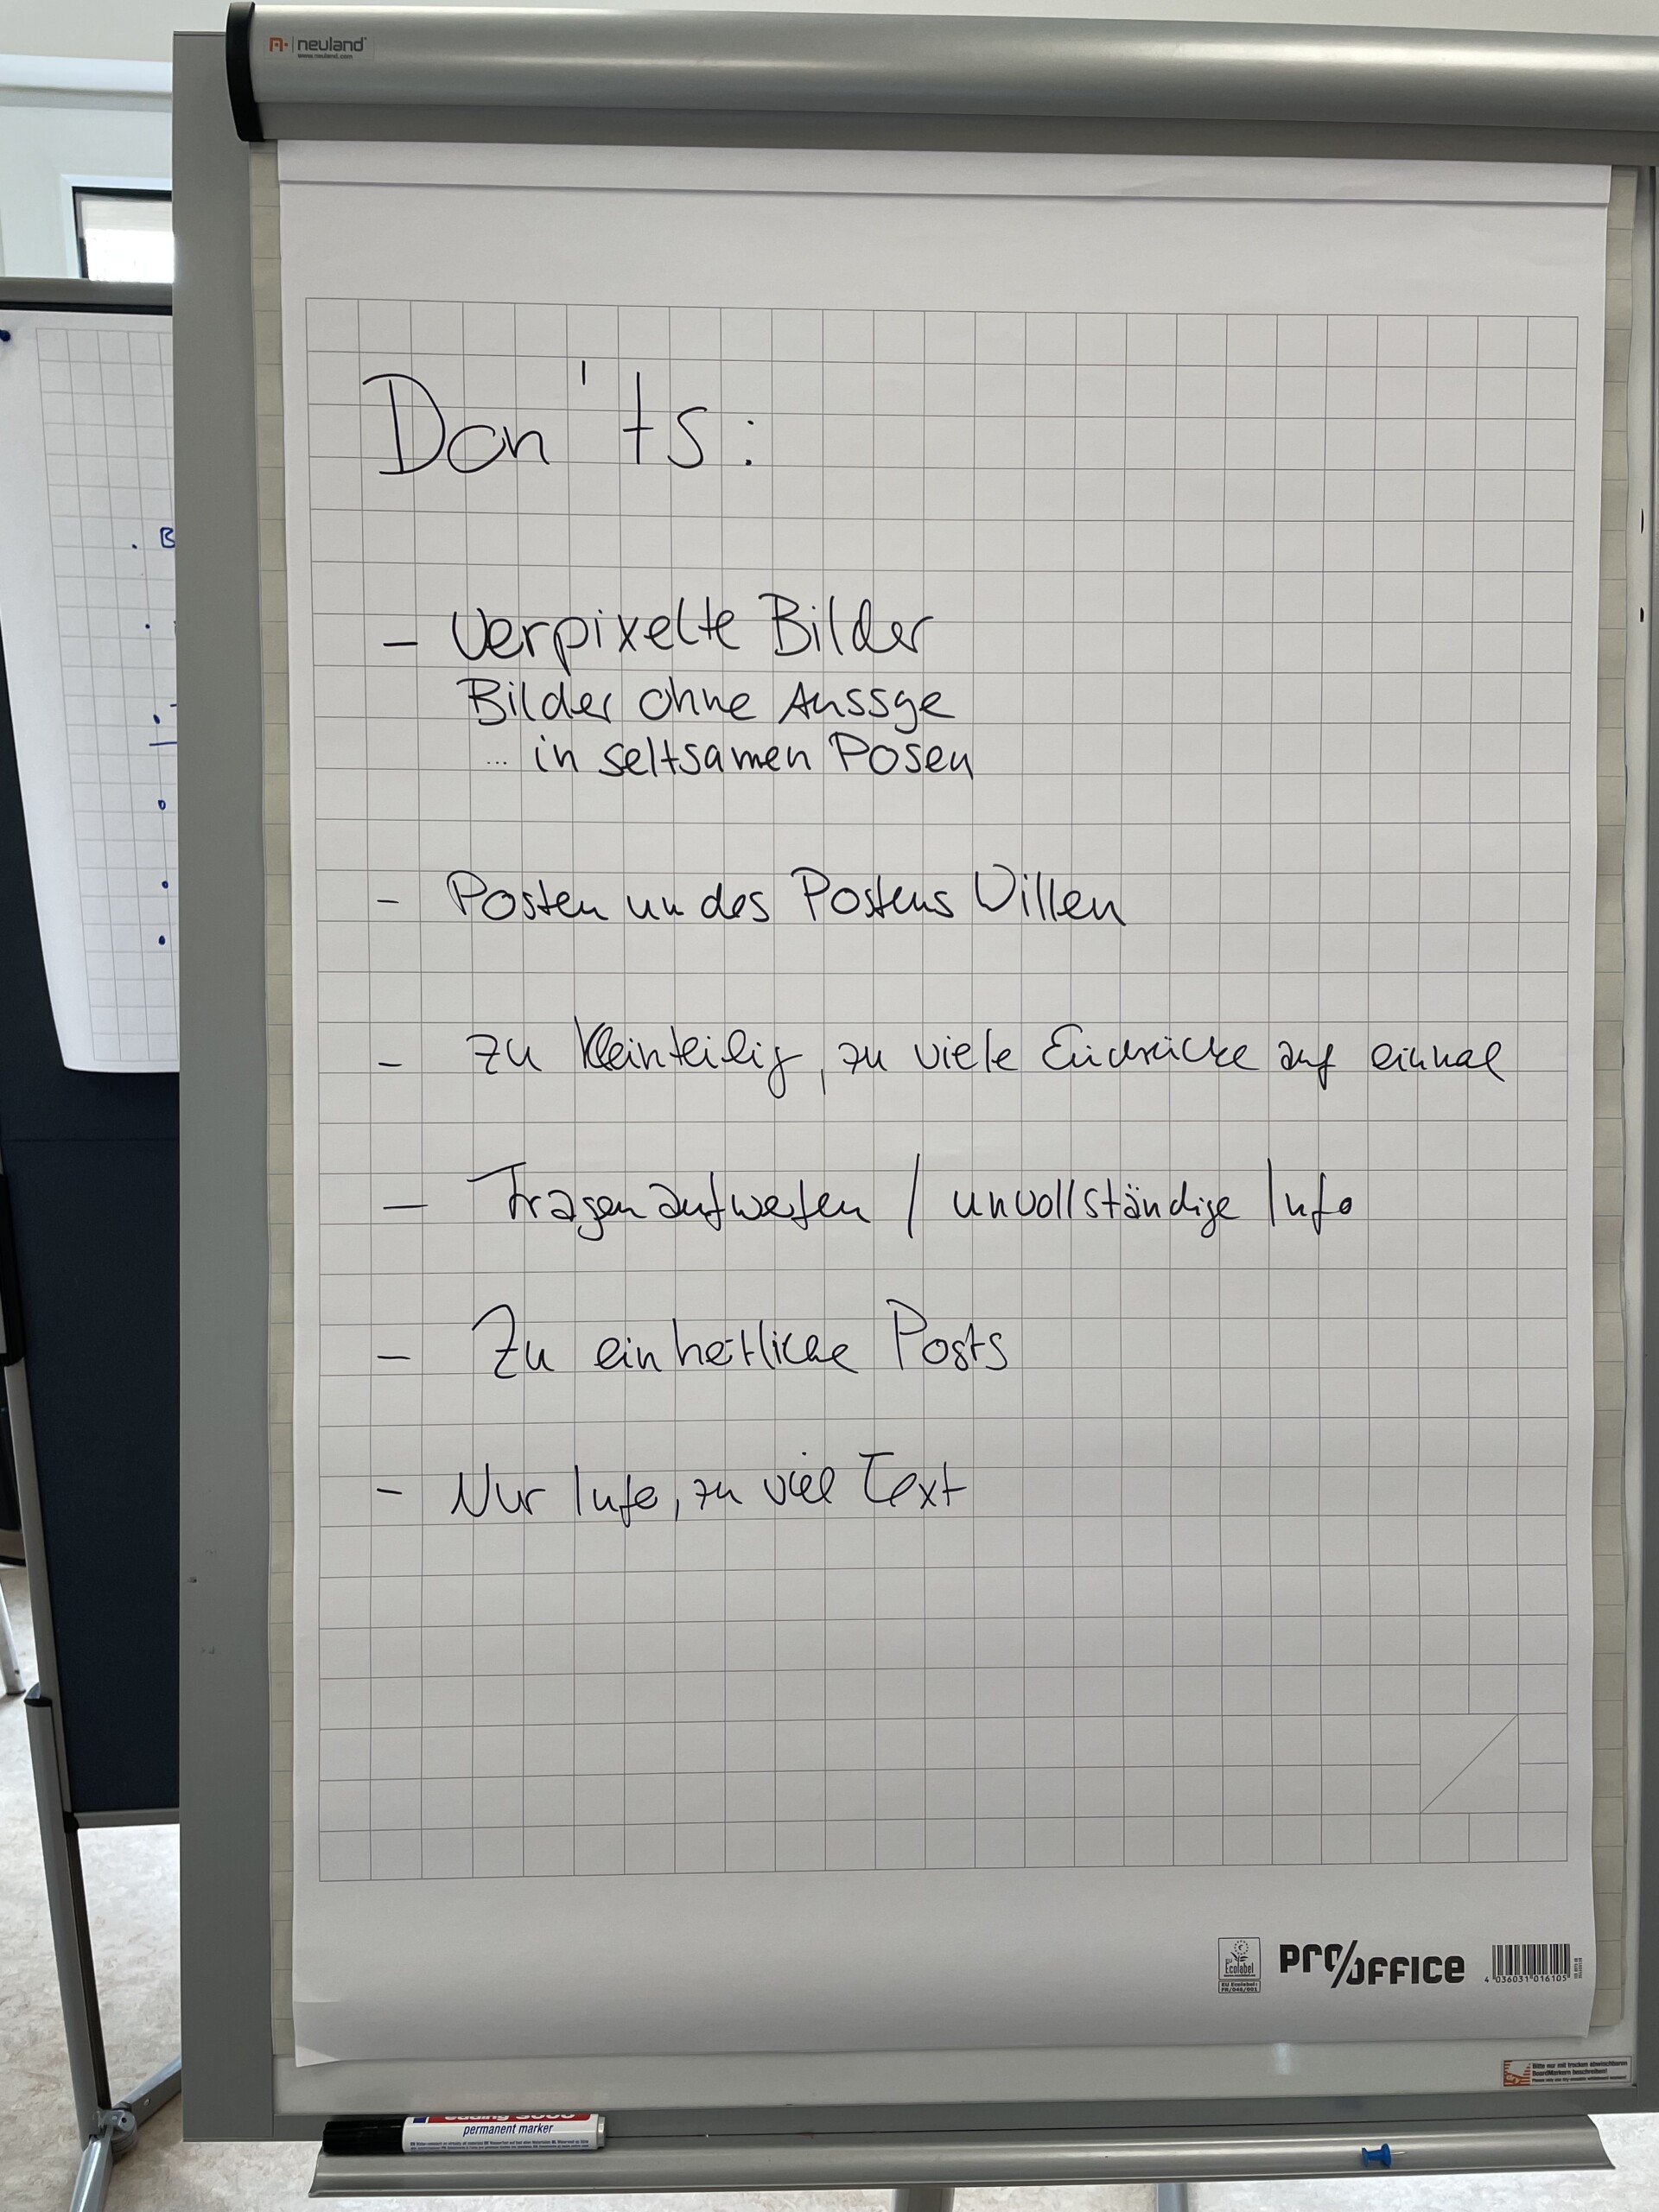 neuland
www.neuland.com
Don'ts:
– Verpixelte Bilder
Bilder ohne Aussge
... in seltsamen Posen
- Posten um des Postens Willen
- zu kleinteilig, zu viele Eindrücke auf einmal
- Fragen aufwerfen / unvollständige Info
- Zu einheitliche Posts
- Nur Info, zu viel Text
B
Ecolabel
EU Ecolabel:
FR/046/001
PRO/OFFICE
4 036031 016105
Bitte nur mit trocken abwischbaren
BoardMarkern beschreiben!
permanent marker